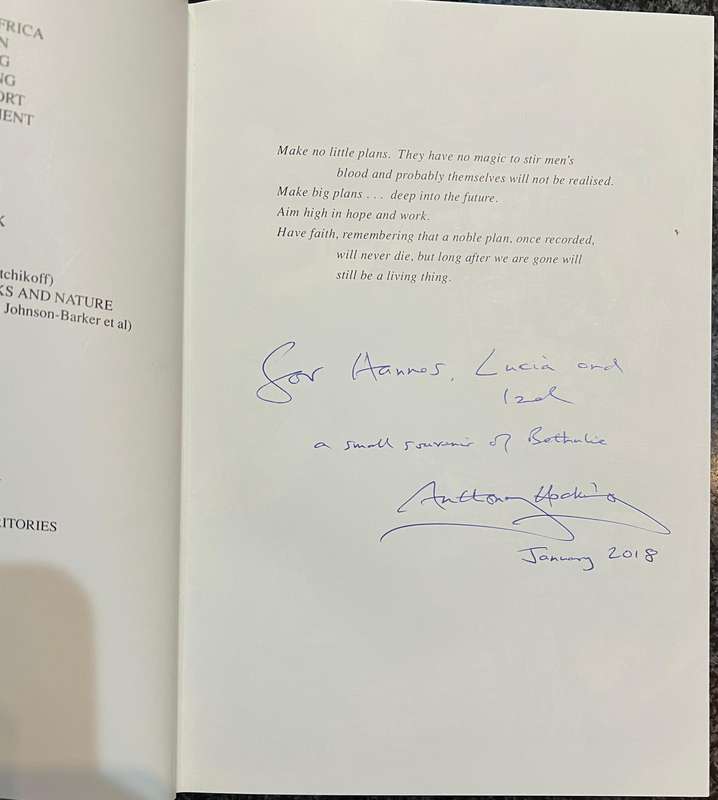 FRICA
N
G
NG
ORT
MENT
K
tchikoff)
KS AND NATURE
Johnson-Barker et al)
ITORIES
Make no little plans. They have no magic to stir men's
blood and probably themselves will not be realised.
Make big plans . . . deep into the future.
Aim high in hope and work.
Have faith, remembering that a noble plan, once recorded,
will never die, but long after we are gone will
still be a living thing.
For Hannes, Lucia and
Izel
a small souvenir of Bethulie
Anthony Hocking
January 2018